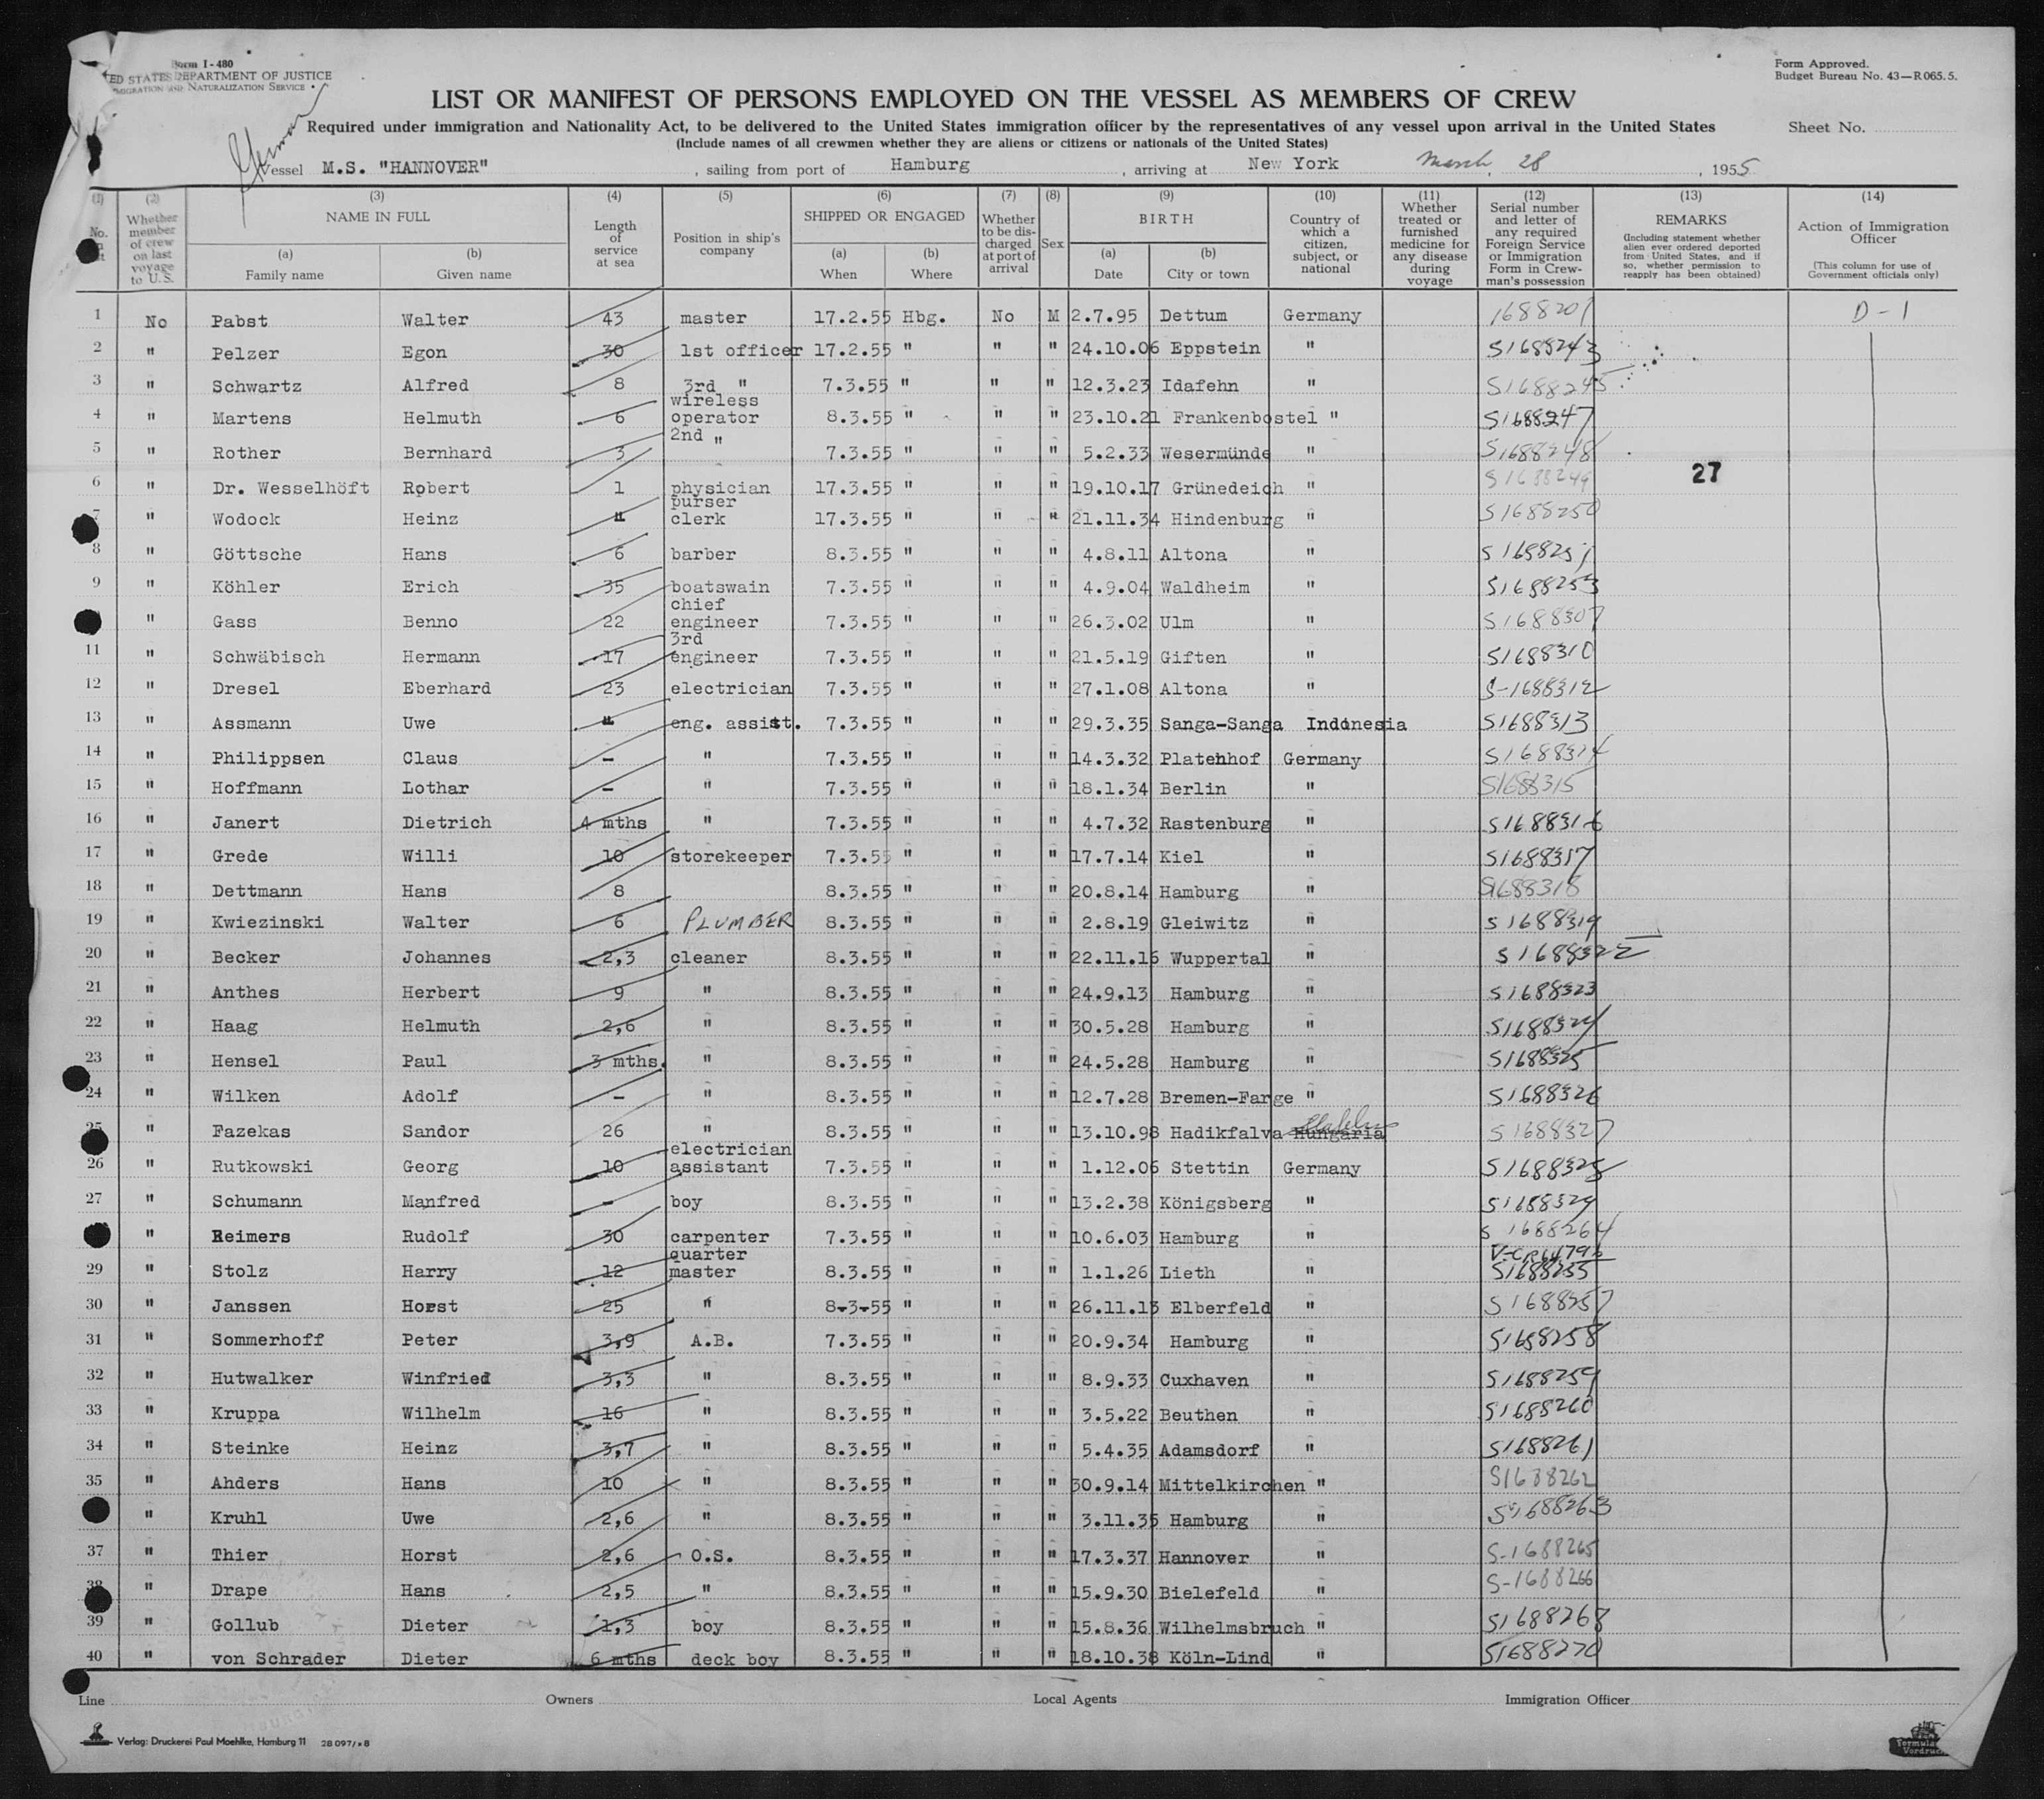 Form I-480
ED STATES DEPARTMENT OF JUSTICE
IMMIGRATION AND NATURALIZATION SERVICE
Form Approved.
Budget Bureau No. 43—R065.5.
LIST OR MANIFEST OF PERSONS EMPLOYED ON THE VESSEL AS MEMBERS OF CREW
Required under immigration and Nationality Act, to be delivered to the United States immigration officer by the representatives of any vessel upon arrival in the United States
Sheet No.
(Include names of all crewmen whether they are aliens or citizens or nationals of the United States)
German
Vessel M.S. "HANNOVER", sailing from port of Hamburg, arriving at New York March, 28, 1955
(1) (2) (3) (4) (5) (6) (7) (8) (9) (10) (11) (12) (13) (14)
No. Whether member of crew on last voyage to U.S. NAME IN FULL (a) Family name (b) Given name Length of service at sea Position in ship's company SHIPPED OR ENGAGED (a) When (b) Where Whether to be discharged at port of arrival Sex BIRTH (a) Date (b) City or town Country of which a citizen, subject, or national Whether treated or furnished medicine for any disease during voyage Serial number and letter of any required Foreign Service or Immigration Form in Crewman's possession REMARKS (Including statement whether alien ever ordered deported from United States, and if so, whether permission to reapply has been obtained) Action of Immigration Officer (This column for use of Government officials only)
1 No Pabst Walter 43 master 17.2.55 Hbg. No M 2.7.95 Dettum Germany 1688201 D-1
2 " Pelzer Egon 30 1st officer 17.2.55 " " " 24.10.06 Eppstein " S1688243
3 " Schwartz Alfred 8 3rd " 7.3.55 " " " 12.3.23 Idafehn " S1688245
4 " Martens Helmuth 6 wireless operator 8.3.55 " " " 23.10.21 Frankenbostel " S1688247
5 " Rother Bernhard 3 2nd " 7.3.55 " " " 5.2.33 Wesermünde " S1688248
6 " Dr. Wesselhöft Robert 1 physician 17.3.55 " " " 19.10.17 Grünedeich " S1688249 27
7 " Wodock Heinz " purser clerk 17.3.55 " " " 21.11.34 Hindenburg " S1688250
8 " Göttsche Hans 6 barber 8.3.55 " " " 4.8.11 Altona " S1688251
9 " Köhler Erich 35 boatswain 7.3.55 " " " 4.9.04 Waldheim " S1688253
" Gass Benno 22 chief engineer 7.3.55 " " " 26.3.02 Ulm " S1688307
11 " Schwäbisch Hermann 17 3rd engineer 7.3.55 " " " 21.5.19 Giften " S1688310
12 " Dresel Eberhard 23 electrician 7.3.55 " " " 27.1.08 Altona " S-1688312
13 " Assmann Uwe " eng. assist. 7.3.55 " " " 29.3.35 Sanga-Sanga Indonesia S1688313
14 " Philippsen Claus - " 7.3.55 " " " 14.3.32 Platenhof Germany S1688314
15 " Hoffmann Lothar - " 7.3.55 " " " 18.1.34 Berlin " S1688315
16 " Janert Dietrich 4 mths " 7.3.55 " " " 4.7.32 Rastenburg " S1688316
17 " Grede Willi 10 storekeeper 7.3.55 " " " 17.7.14 Kiel " S1688317
18 " Dettmann Hans 8 8.3.55 " " " 20.8.14 Hamburg " S1688318
19 " Kwiezinski Walter 6 PLUMBER 8.3.55 " " " 2.8.19 Gleiwitz " S1688319
20 " Becker Johannes 2,3 cleaner 8.3.55 " " " 22.11.16 Wuppertal " S1688322
21 " Anthes Herbert 9 " 8.3.55 " " " 24.9.13 Hamburg " S1688323
22 " Haag Helmuth 2,6 " 8.3.55 " " " 30.5.28 Hamburg " S1688324
23 " Hensel Paul 3 mths. " 8.3.55 " " " 24.5.28 Hamburg " S1688325
24 " Wilken Adolf - " 8.3.55 " " " 12.7.28 Bremen-Farge " S1688326
25 " Fazekas Sandor 26 " 8.3.55 " " " 13.10.98 Hadikfalva Hungaria S1688327
26 " Rutkowski Georg 10 electrician assistant 7.3.55 " " " 1.12.06 Stettin Germany S1688328
27 " Schumann Manfred - boy 8.3.55 " " " 13.2.38 Königsberg " S1688329
" Reimers Rudolf 30 carpenter 7.3.55 " " " 10.6.03 Hamburg " S 1688264
29 " Stolz Harry 12 quarter master 8.3.55 " " " 1.1.26 Lieth " S1688255
30 " Janssen Horst 25 " 8-3-55 " " " 26.11.13 Elberfeld " S1688257
31 " Sommerhoff Peter 3,9 A.B. 7.3.55 " " " 20.9.34 Hamburg " S1688258
32 " Hutwalker Winfried 3,3 " 8.3.55 " " " 8.9.33 Cuxhaven " S1688259
33 " Kruppa Wilhelm 16 " 8.3.55 " " " 3.5.22 Beuthen " S1688260
34 " Steinke Heinz 3,7 " 8.3.55 " " " 5.4.35 Adamsdorf " S1688261
35 " Ahders Hans 10 " 8.3.55 " " " 30.9.14 Mittelkirchen " S1688262
" Kruhl Uwe 2,6 " 8.3.55 " " " 3.11.35 Hamburg " S1688263
37 " Thier Horst 2,6 O.S. 8.3.55 " " " 17.3.37 Hannover " S-1688265
38 " Drape Hans 2,5 " 8.3.55 " " " 15.9.30 Bielefeld " S-1688266
39 " Gollub Dieter 1,3 boy 8.3.55 " " " 15.8.36 Wilhelmsbruch " S1688268
40 " von Schrader Dieter 6 mths deck boy 8.3.55 " " " 18.10.38 Köln-Lind " S1688270
Line Owners Local Agents Immigration Officer
Verlag: Druckerei Paul Moehlke, Hamburg 11 28 097/*8